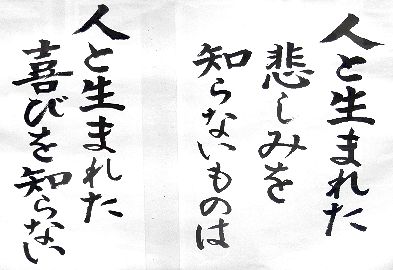 人と生まれた
悲しみを
知らないものは
人と生まれた
喜びを知らない